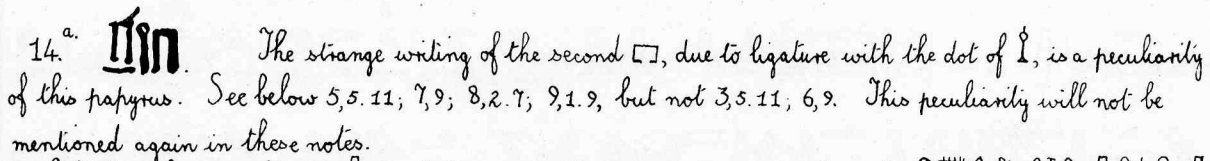 14.ᵃ· 𓉐𓌉𓉐. The strange writing of the second 𓉐, due to ligature with the dot of 𓌉, is a peculiarity
of this papyrus. See below 5,5.11; 7,9; 8,2.7; 9,1.9, but not 3,5.11; 6,9. This peculiarity will not be
mentioned again in these notes.